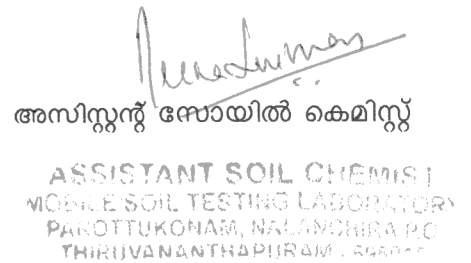 അസിസ്റ്റന്റ് സോയിൽ കെമിസ്റ്റ്
ASSISTANT SOIL CHEMIST
MOBILE SOIL TESTING LABORATORY
PAROTTUKONAM, NALANCHIRA P.O
THIRUVANANTHAPURAM